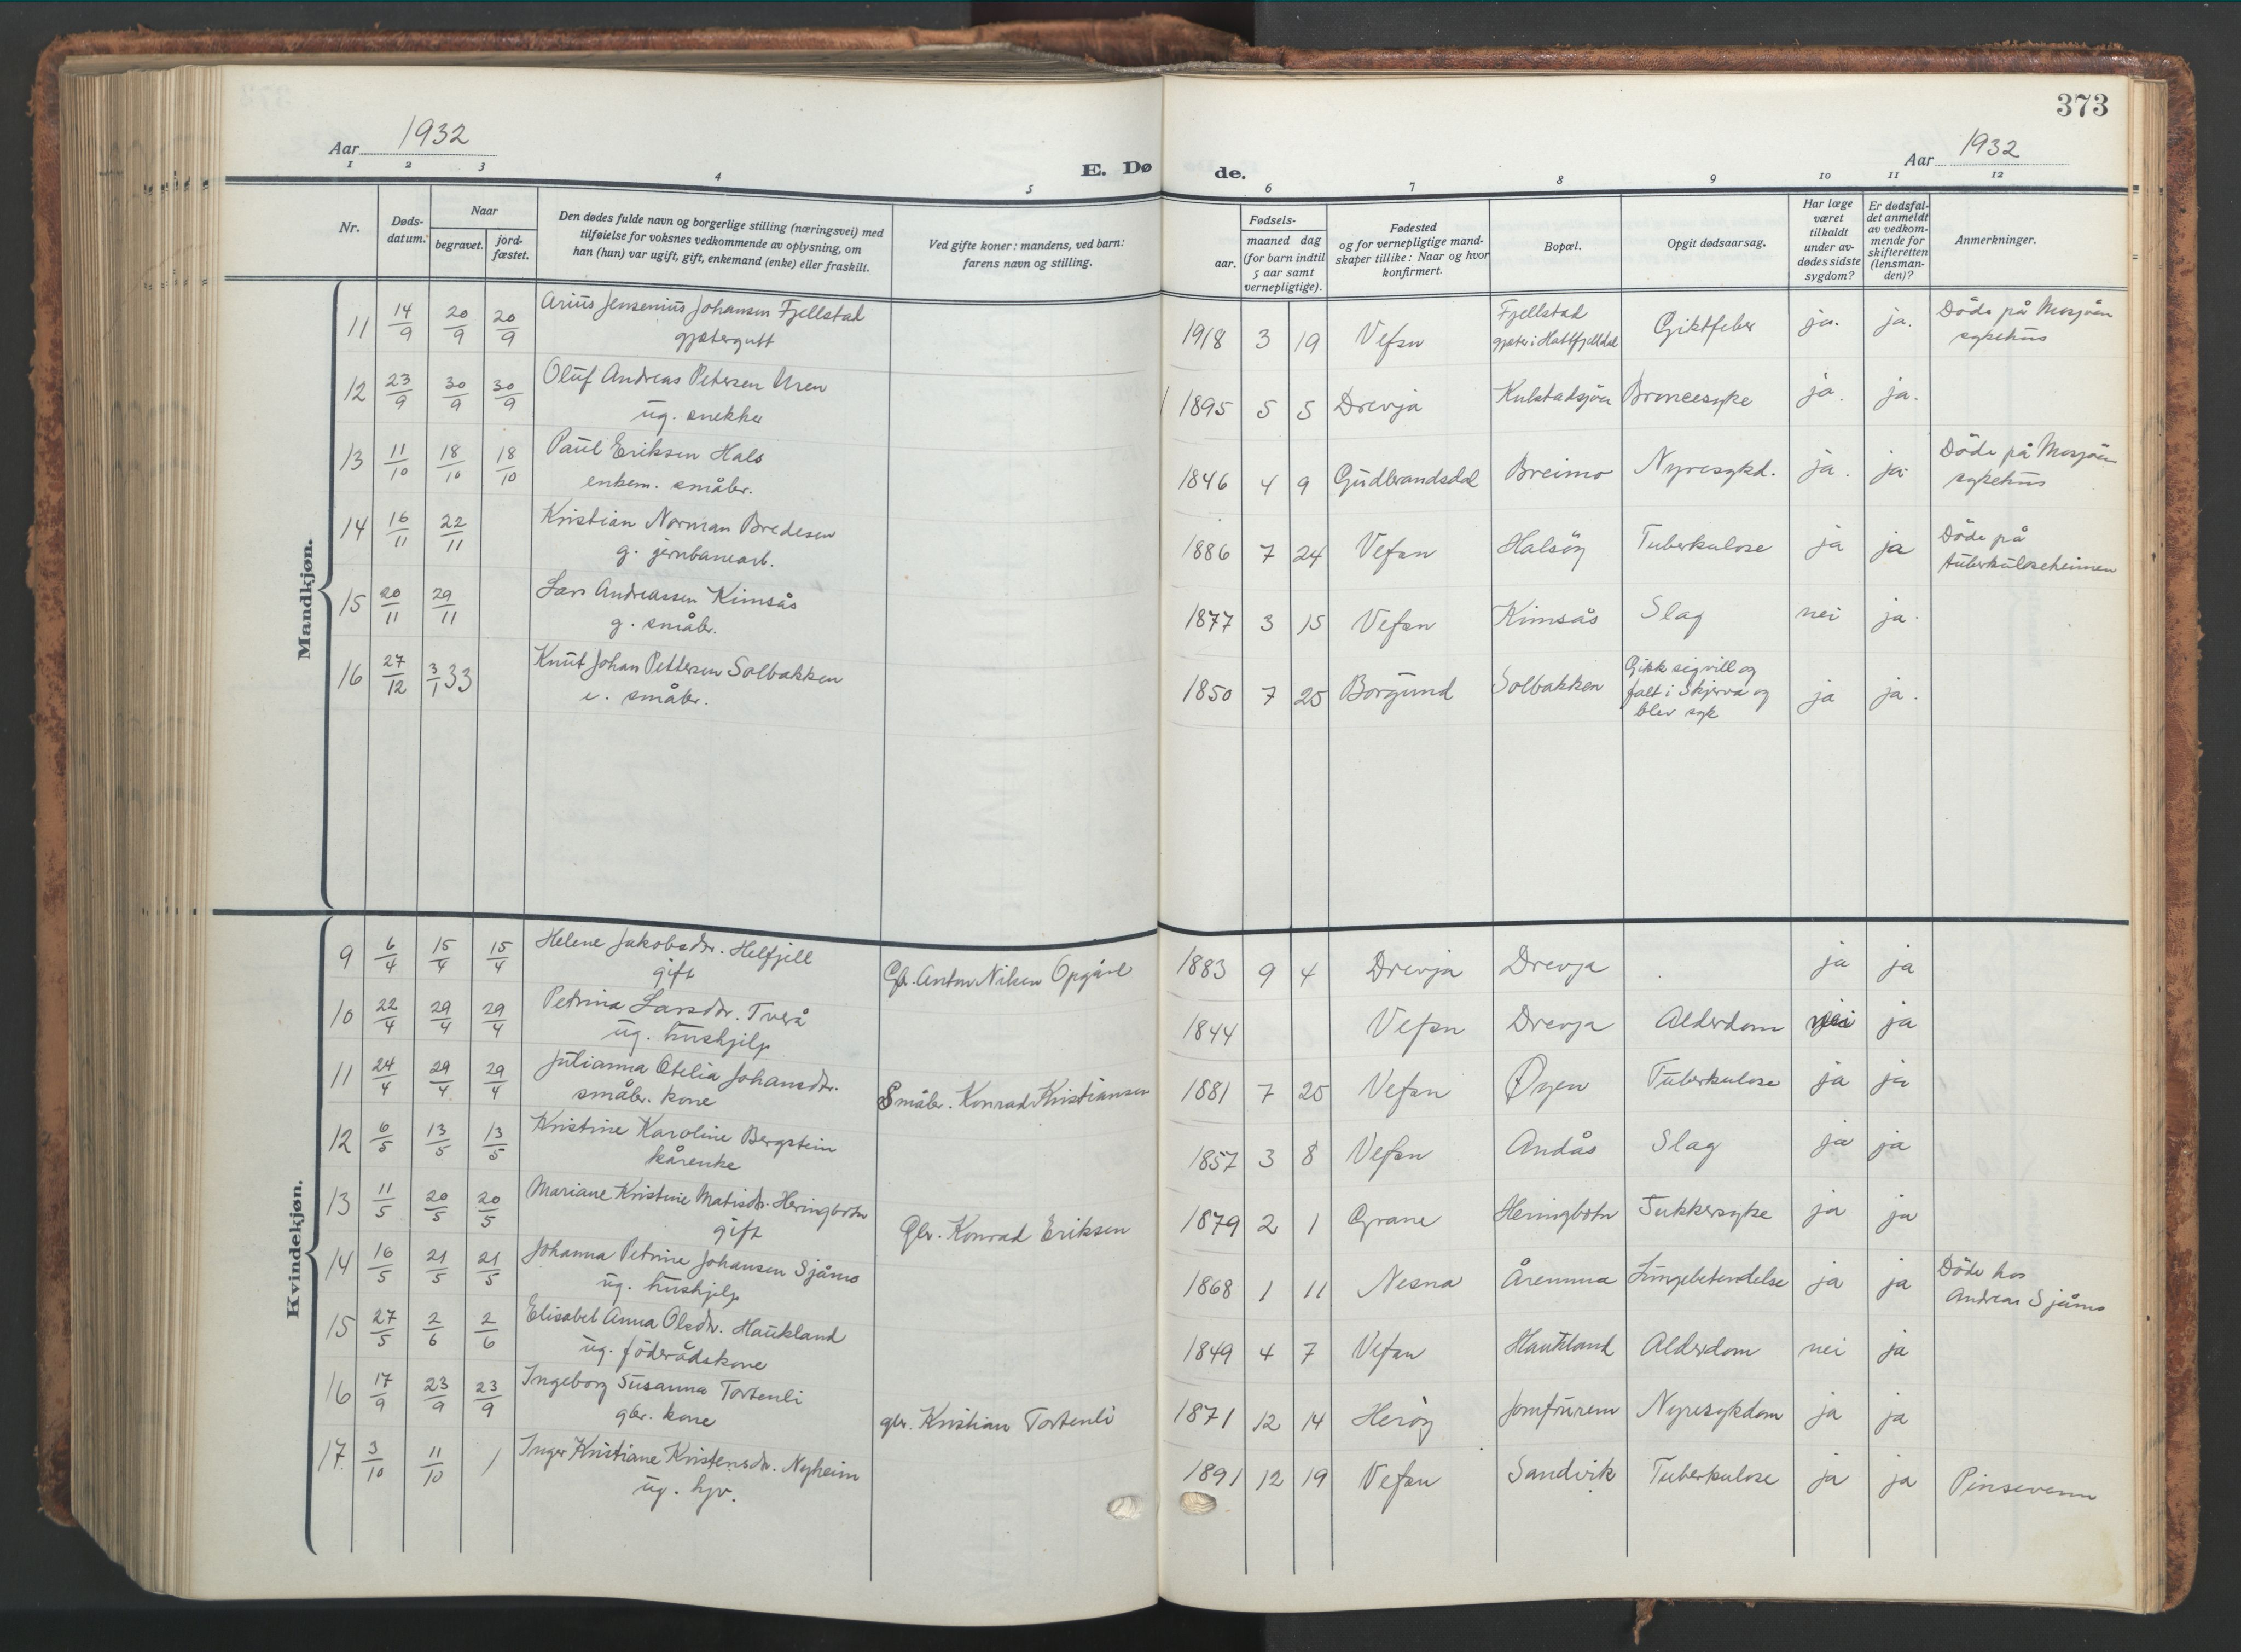 373
Aar 1932
E. Dø
de.
Aar 1932
1 2 3 4 5 6 7 8 9 10 11 12
Nr.
Døds-
datum.
Naar
begravet.
jord-
fæstet.
Den dødes fulde navn og borgerlige stilling (næringsvei) med
tilføielse for voksnes vedkommende av oplysning, om
han (hun) var ugift, gift, enkemand (enke) eller fraskilt.
Ved gifte koner: mandens, ved barn:
farens navn og stilling.
Fødsels-
aar.
maaned dag
(for barn indtil
5 aar samt
vernepligtige).
Fødested
og for vernepligtige mand-
skaper tillike: Naar og hvor
konfirmert.
Bopæl.
Opgit dødsaarsag.
Har læge
været
tilkaldt
under av-
dødes sidste
sygdom?
Er dødsfal-
det anmeldt
av vedkom-
mende for
skifteretten
(lensman-
den)?
Anmerkninger.
Mandkjøn.
11 14/9 20/9 20/9 Arius Jensenius Johansen Fjellstad
gjætergutt
1918 3 19 Vefsn
Fjellstad
gjæter i Hattfjelldal
Giktfeber ja. ja.
Döde på Mosjöen
sykehus
12 23/9 30/9 30/9 Oluf Andreas Petersen Uren
ug. snekker
1895 5 5 Drevja Kulstadsjöen Broncesyke ja. ja.
13 11/10 18/10 18/10 Paul Eriksen Hals
enkem. småbr.
1846 4 9 Gudbrandsdal Breimo Nyresykd. ja. ja
Döde på Mosjöen
sykehus
14 16/11 22/11 Kristian Norman Bredesen
g. jernbanearb.
1886 7 24 Vefsn Halsöy Tuberkulose ja ja
Döde på
tuberkuloseheimen
15 20/11 29/11 Lars Andreassen Kimsås
g. småbr.
1877 3 15 Vefsn Kimsås Slag nei ja.
16 27/12 3/1 33 Knut Johan Pettersen Solbakken
e. småbr.
1850 7 25 Borgund Solbakken
Gikk sig vill og
falt i Skjerva og
blev syk
ja ja.
Kvindekjøn.
9 6/4 15/4 15/4 Helene Jakobsdr. Helfjell
gift
Gb. Anton Nilsen Opgård
1883 9 4 Drevja Drevja ja ja
10 22/4 29/4 29/4 Petrina Larsdr. Tverå
ug. hushjelp
1844 Vefsn Drevja Alderdom nei ja
11 24/4 29/4 29/4 Julianna Otelia Johansdtr.
småbr. kone
Småbr. Konrad Kristiansen
1881 7 25 Vefsn Øyen Tuberkulose ja ja
12 6/5 13/5 13/5 Kristine Karoline Bergstein
kårenke
1857 3 8 Vefsn Andås Slag ja ja
13 11/5 20/5 20/5 Mariane Kristine Matisdr. Heringbotn
gift
Gbr. Konrad Eriksen
1879 2 1 Grane Heringbotn Sukkersyke ja ja
14 16/5 21/5 21/5 Johanna Petrine Johansen Sjåmo
ug. hushjelp
1868 1 11 Nesna Åremma Lungebetendelse ja ja
Döde hos
Andreas Sjåmo
15 27/5 2/6 2/6 Elisabet Anna Olsdr. Haukland
ug. föderådskone
1849 4 7 Vefsn Haukland Alderdom nei ja
16 17/9 23/9 23/9 Ingeborg Susanna Tortenli
gbr. kone
gbr. Kristian Tortenli
1871 12 14 Heröy Jomfrurem Nyresykdom ja ja
17 3/10 11/10 / Inger Kristiane Kristensdr. Nyheim
ug. hjv.
1891 12 19 Vefsn Sandvik Tuberkulose ja ja Pinsevenn